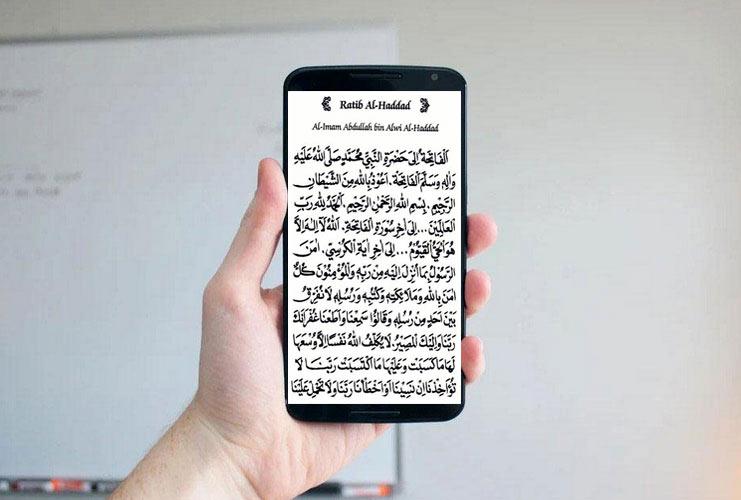 Ratib Al-Haddad
Al-Imam Abdullah bin Alwi Al-Haddad
اَلْفَاتِحَةُ إِلَى حَضْرَةِ النَّبِيِّ مُحَمَّدٍ صَلَّى اللهُ عَلَيْهِ
وَاٰلِهِ وَسَلَّمَ اَلْفَاتِحَةَ. اَعُوْذُ بِاللهِ مِنَ الشَّيْطَانِ
الرَّجِيْمِ. بِسْمِ اللهِ الرَّحْمٰنِ الرَّحِيْمِ. اَلْحَمْدُ لِلهِ رَبِّ
الْعَالَمِيْنَ ... اِلَى اٰخِرِ سُوْرَةِ الْفَاتِحَةِ. اَللهُ لَآ اِلٰهَ اِلَّا
هُوَ الْحَيُّ الْقَيُّوْمُ ... اِلَى اٰخِرِ اٰيَةِ الْكُرْسِيِّ. اٰمَنَ
الرَّسُوْلُ بِمَا اُنْزِلَ اِلَيْهِ مِنْ رَبِّهِ وَالْمُؤْمِنُوْنَ كُلٌّ
اٰمَنَ بِاللهِ وَمَلَائِكَتِهِ وَكُتُبِهِ وَرُسُلِهِ لَا نُفَرِّقُ
بَيْنَ اَحَدٍ مِنْ رُسُلِهِ وَقَالُوْا سَمِعْنَا وَاَطَعْنَا غُفْرَانَكَ
رَبَّنَا وَاِلَيْكَ الْمَصِيْرُ. لَا يُكَلِّفُ اللهُ نَفْسًا اِلَّا وُسْعَهَا
لَهَا مَا كَسَبَتْ وَعَلَيْهَا مَا اكْتَسَبَتْ رَبَّنَا لَا
تُؤَاخِذْنَا اِنْ نَسِيْنَا اَوْ اَخْطَأْنَا رَبَّنَا وَلَا تَحْمِلْ عَلَيْنَا